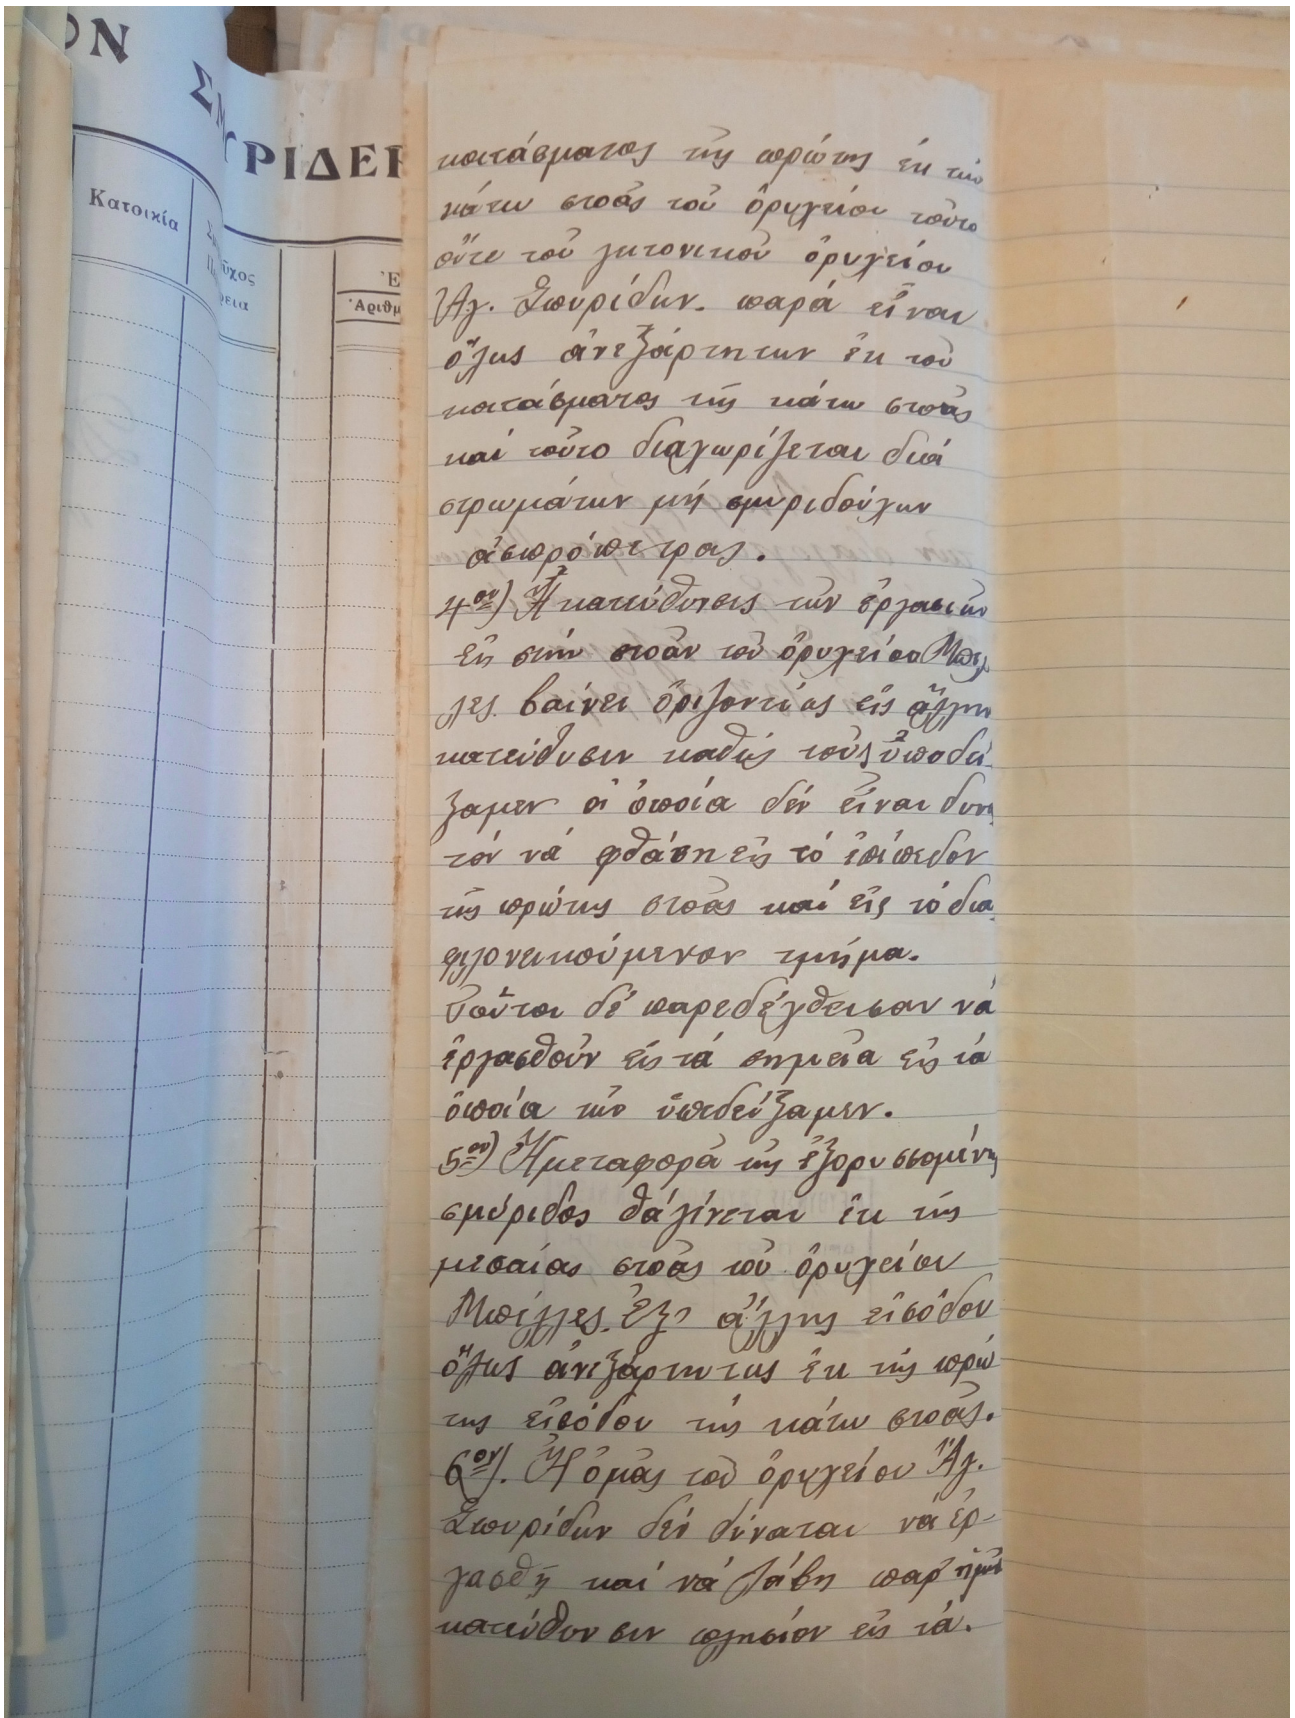 ΟΝ
ΣΜΥΡΙΔΕΡ
Κατοικία
ῦχος
ρεια
Ἀριθμ
κοιτάσματος τῆς πρώτης ἐκ τῶν
κάτω στοᾶς τοῦ ὀρυχείου τούτου
οὔτε τοῦ γειτονικοῦ ὀρυχείου
Ἁγ. Σπυρίδων. παρά εἶναι
ὅλως ἀνεξάρτητων ἐκ τοῦ
κοιτάσματος τῆς κάτω στοᾶς
καί τοῦτο διαχωρίζεται διά
στρωμάτων μή σμυριδούχων
ἀσπρόπετρας.
4ον) Ἡ κατεύθυνσις τῶν ἐργασιῶν
εἰς στήν στοάν τοῦ ὀρυχείου Μπέλ
λες βαίνει ὁριζοντίως εἰς ἄλλην
κατεύθυσιν καθώς τούς ὑποδεί
ξαμεν οἱ ὁποία δέν εἶναι δυνα
τόν νά φθάση εἰς τό ἐπίπεδον
τῆς πρώτης στοᾶς καί εἰς τό δια
φιλονεικούμενον τμῆμα.
Τοῦτοι δέ παρεδέχθεισαν νά
ἐργασθοῦν εἰς τά σημεῖα εἰς τά
ὁποία τῶν ὑπεδείξαμεν.
5ον) Ἡ μεταφορά τῆς ἐξορυσσομένης
σμύριδος θά γίνεται ἐκ τῆς
μεσαίας στοᾶς τοῦ ὀρυχείου
Μπέλλες. ἐξ ἄλλης εἰσόδου
ὅλως ἀνεξάρτητως ἐκ τῆς πρώ
της εἰσόδου τῆς κάτω στοᾶς.
6ον). Ἡ ὁμάς τοῦ ὀρυχείου Ἁγ.
Σπυρίδων δέν δύναται νά ἐρ-
γασθῆ καί νά λάβη παρ' ἡμῶν
κατεύθυνσιν πλησίον εἰς τά.